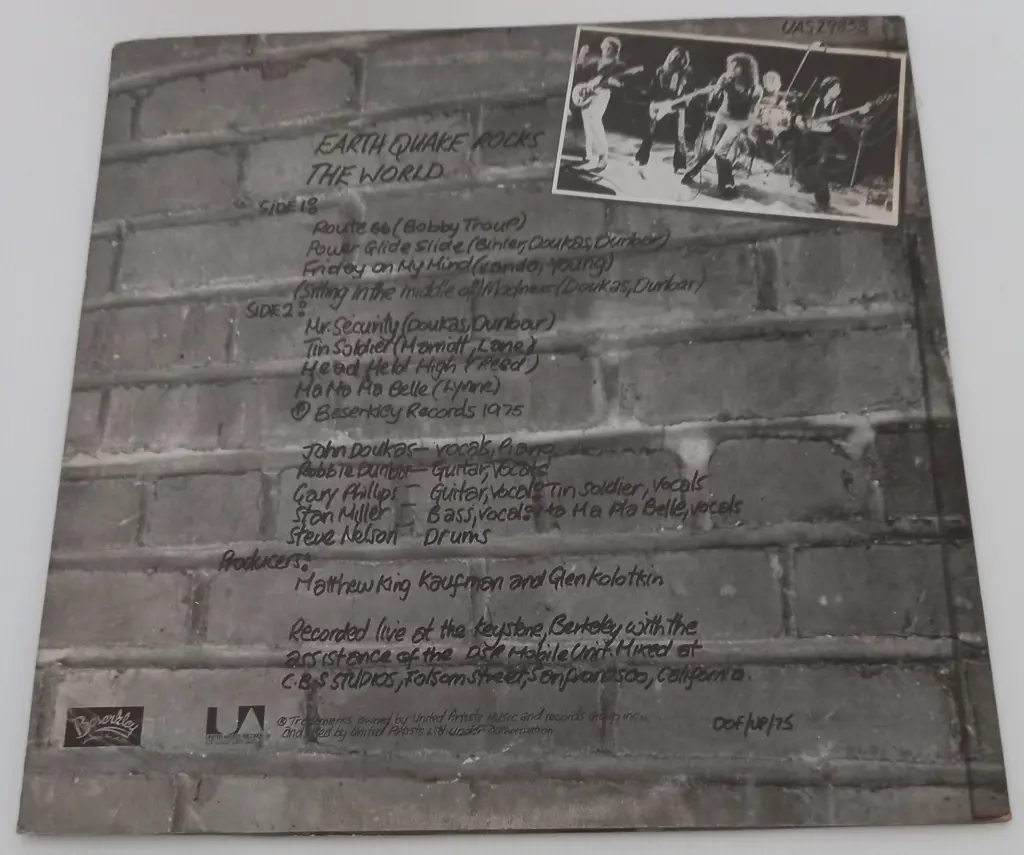 UAS29853
EARTH QUAKE ROCKS
THE WORLD
SIDE 1:
Route 66 (Bobby Troup)
Power Glide Slide (Doukas, Dunbar)
Friday on My Mind (Vanda, Young)
(Sitting in the middle of) Madness (Doukas, Dunbar)
SIDE 2:
Mr. Security (Doukas, Dunbar)
Tin Soldier (Marriott, Lane)
Head Held High (Reed)
Ma Ma Ma Belle (Lynne)
℗ Beserkley Records 1975
John Doukas - vocals, Piano
Robbie Dunbar - Guitar, vocals
Gary Phillips - Guitar, vocals: Tin Soldier, vocals
Stan Miller - Bass, vocals: Ma Ma Ma Belle, vocals
Steve Nelson - Drums
Producers:
Matthew King Kaufman and Glen Kolotkin
Recorded live at the Keystone, Berkeley with the
assistance of the DSR Mobile Unit. Mixed at
C.B.S STUDIOS, Folsom Street, San Francisco, California.
Beserkley
UA
® Trademarks owned by United Artists Music and records group inc.,
and used by United Artists LTD under authorisation
OOF/UP/75